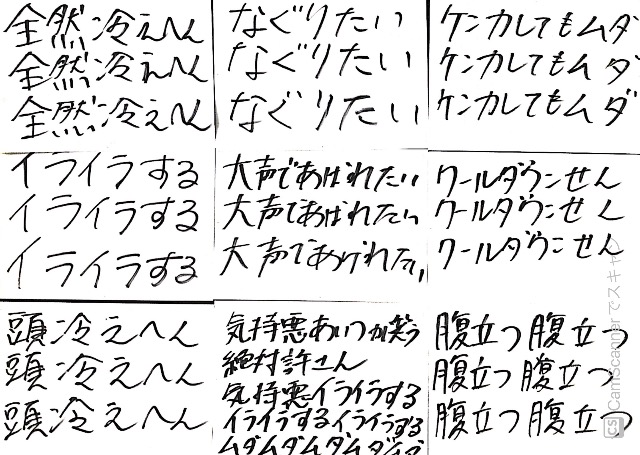 全然冷えへん
全然冷えへん
全然冷えへん
なぐりたい
なぐりたい
なぐりたい
ケンカしてもムダ
ケンカしてもムダ
ケンカしてもムダ
イライラする
イライラする
イライラする
大声であばれたい
大声であばれたい
大声であばれたい
クールダウンせん
クールダウンせん
クールダウンせん
頭冷えへん
頭冷えへん
頭冷えへん
気持悪あいつが笑う
絶対許さん
気持悪イライラする
イライラするイライラする
ムダムダムダムダ
腹立つ腹立つ
腹立つ腹立つ
腹立つ腹立つ
CS CamScannerでスキャン